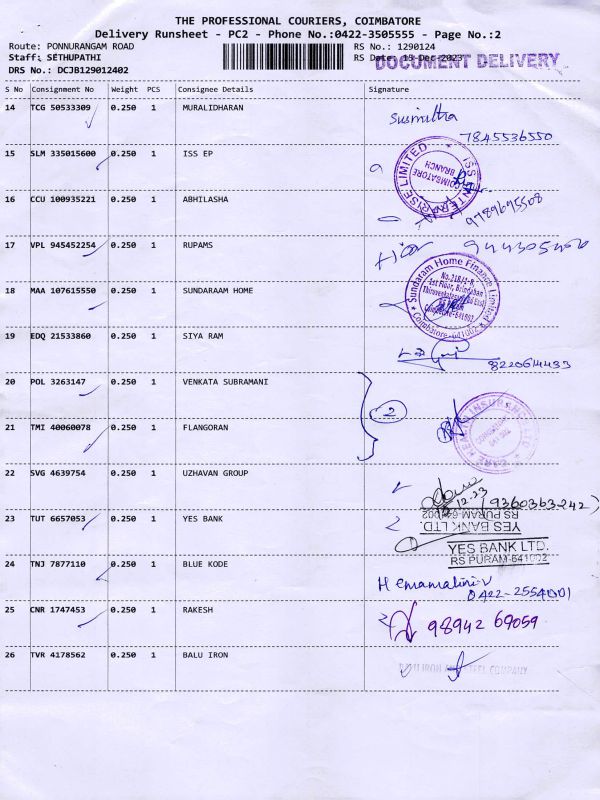 THE PROFESSIONAL COURIERS, COIMBATORE
Delivery Runsheet - PC2 - Phone No.:0422-3505555 - Page No.:2
Route: PONNURANGAM ROAD RS No.: 1290124
Staff: SETHUPATHI RS Date: 13-Dec-2023
DOCUMENT DELIVERY
DRS No.: DCJB129012402
S No Consignment No Weight PCS Consignee Details Signature
14 TCG 50533309 0.250 1 MURALIDHARAN
Susmitha
7845536550
15 SLM 335015600 0.250 1 ISS EP
COIMBATORE
BRANCH
16 CCU 100935221 0.250 1 ABHILASHA
9789695508
17 VPL 945452254 0.250 1 RUPAMS
18 MAA 107615550 0.250 1 SUNDARAAM HOME
Sundaram Home Finance Limited
1st Floor, Brindaban
Coimbatore-641002
19 EDQ 21533860 0.250 1 SIYA RAM
8220614433
20 POL 3263147 0.250 1 VENKATA SUBRAMANI
2
21 TMI 40060078 0.250 1 FLANGORAN
22 SVG 4639754 0.250 1 UZHAVAN GROUP
12.23
(9360363242)
23 TUT 6657053 0.250 1 YES BANK
YES BANK LTD.
RS PURAM-641002
YES BANK LTD.
RS PURAM-641002
24 TNJ 7877110 0.250 1 BLUE KODE
Hemamalini.V
0422-2554001
25 CNR 1747453 0.250 1 RAKESH
98942 69059
26 TVR 4178562 0.250 1 BALU IRON
BALU IRON AND STEEL COMPANY